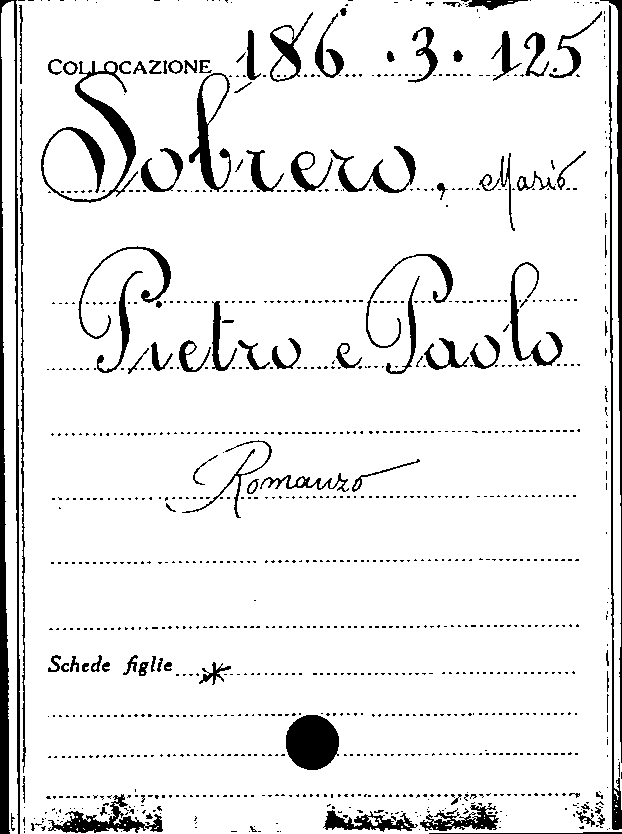 COLLOCAZIONE 186.3.125
Sobrero, Mario
Pietro e Paolo
Romanzo
Schede figlie *